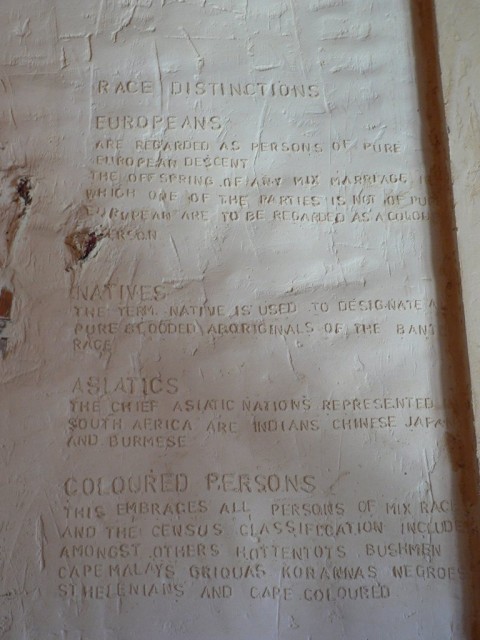 RACE DISTINCTIONS
EUROPEANS
ARE REGARDED AS PERSONS OF PURE
EUROPEAN DESCENT
THE OFFSPRING OF ANY MIX MARRIAGE
WHICH ONE OF THE PARTIES IS NOT OF
EUROPEAN ARE TO BE REGARDED AS A
NATIVES
THE TERM NATIVE IS USED TO DESIGNATE
PURE BLOODED ABORIGINALS OF THE
RACE
ASIATICS
THE CHIEF ASIATIC NATIONS REPRESENTED
SOUTH AFRICA ARE INDIANS CHINESE
AND BURMESE
COLOURED PERSONS
THIS EMBRACES ALL PERSONS OF MIX RACE
AND THE CENSUS CLASSIFICATION INCLUDE
AMONGST OTHERS HOTTENTOTS BUSHMEN
CAPE MALAYS GRIQUAS KORANNAS NEGROES
ST HELENIANS AND CAPE COLOURED